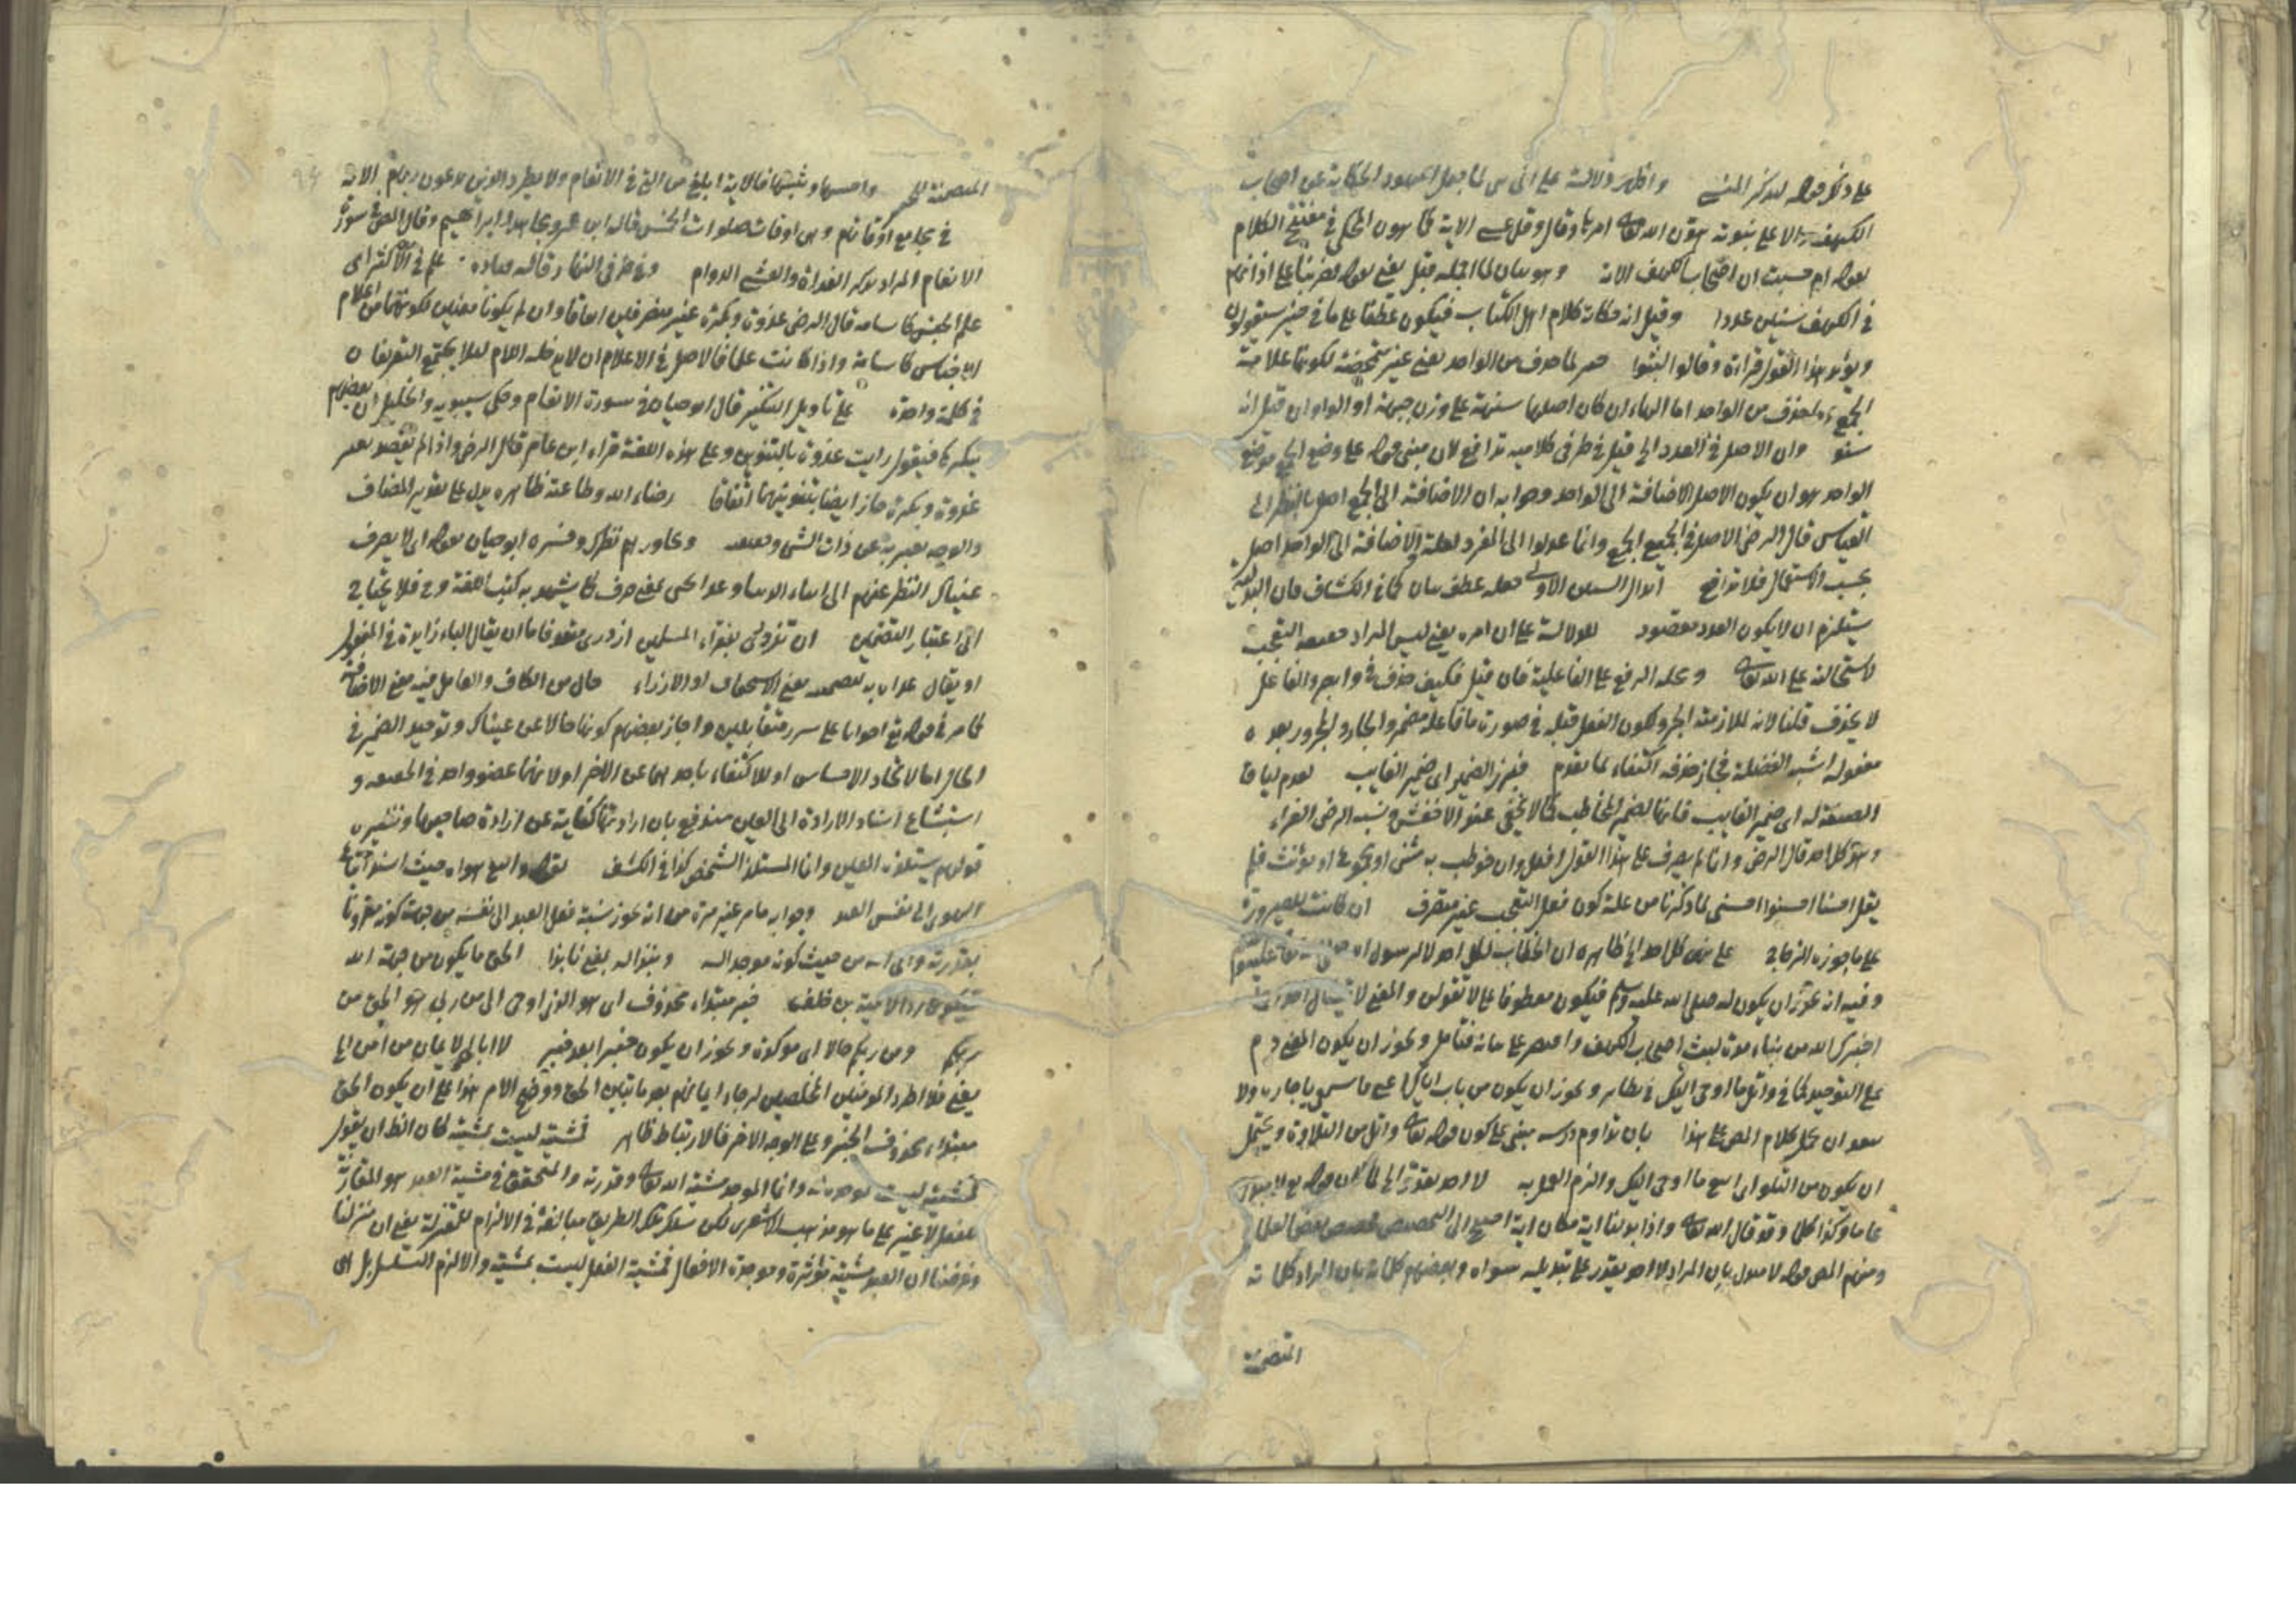 على ذكر قوله لذكر المنسى واظهر دلالة على انى من لما جعل اليهود الحكاية عن اصحاب
الكهف دالا على نبوته هون الله تعالى امرها وقال وقل عسى الاية كما هون المحكى في مفتتح الكلام
بقوله ام حسبت ان اصحاب الكهف الاية وهو بيان لما اجمله قبل يعنى بقوله فضربنا على اذانهم
في الكهف سنين عددا وقيل انه حكاية كلام اهل الكتاب فيكون عطفا على ما في حيز سيقولون
ويؤيد هذا القول قراءة وقالوا لبثوا لما حذف من الواحد يعنى غير متمحضة لكونها علامة
الجمع لحذف من الواحد اما الهاء ان كان اصلها سنهة على وزن جبهة او الواو ان قيل انه
سنو وان الاصل في العدد الى قيل في طرفى كلاميه تدافع لان مبنى قوله على وضع الجمع موضع
الواحد هو ان يكون الاصل الاضافة الى الواحد وجوابه ان الاضافة الى الجمع اصل بالنظر الى
القياس قال الرضى الاصل في الجميع الجمع وانما عدلوا الى المفرد لعلة والاضافة الى الواحد اصل
بحسب الاستعمال فلا تدافع ابدال السنين الاولى جعله عطف بيان كما في الكشاف فان البدلية
يستلزم ان لا يكون العدد مقصود للدلالة على ان امره يعنى ليس المراد حقيقة التعجب
لاستحالته على الله تعالى ومحله الرفع على الفاعلية فان قيل فكيف حذف في وابصر والفاعل
لا يحذف قلنا لانه لملازمته الجر ولكون الفعل قبله في صورة ما فاعله مضمر والجار والمجرور بعده
مفعوله اشبه الفضلة فجاز حذفه اكتفاء بما تقدم فبرز الضمير اى ضمير الغايب لعدم لياقة
الصيغة له اى ضمير الغايب فانها لضمير المخاطب كما لا يخفى عند الاخفش ونسبه الرضى الفراء
وهو كل احد قال الرضى وانما لم يصرف على هذا القول افعل وان خوطب به مثنى او مجموع او مؤنث فلم
يقل احسنا احسنوا احسنى لما ذكرنا من علة كون فعل التعجب غير متصرف ان كانت للصيرورة
على ما جوزه الزجاج على نهى كل احد ظاهره ان الخطاب لكل احد لا للرسول صلى الله تعالى عليه وسلم
وفيه انه يجوز ان يكون له صلى الله عليه وسلم فيكون معطوفا على لا تقولن والمعنى لا تسأل احدا
اخبرك الله من نباء مدة لبث اصحاب الكهف واقتصر على بيانه فتأمل ويجوز ان يكون المعنى دم
على التوحيد كما في واتل ما اوحى اليك في نظائره ويجوز ان يكون من باب اياك اعنى فاسمعى يا جارة ولا
يبعد ان يحمل كلام المص على هذا بان تداوم درسه مبنى على كون قوله تعالى واتل من التلاوة ويحتمل
ان يكون من التلو اى اتبع ما اوحى اليك والزم العمل به لا احد يقدر لما كان قوله لا مبدل
عاما وكذا كلماته وقد قال الله تعالى واذا بدلنا اية مكان اية احتيج الى التخصيص فخصص بعض العلماء
ومنهم المص قوله لا مبدل بان المراد لا احد يقدر على تبديله سواه وبعضهم كلماته بان المراد كلماته
المتضمنة
المتضمنة للخبر واحبسها وثبتها فالاية ابلغ من التى في الانعام ولا تطرد الذين يدعون ربهم الاية
في مجامع اوقاتهم وهى اوقات صلوات الخمس قاله ابن عمر ومجاهد وابراهيم وقال المص في سورة
الانعام المراد بذكر الغداة والعشى الدوام وفي طرفى النهار قاله قتادة علم في الاكثر اى
علم الجنس كاسامة قال الرضى غدوة وبكرة غير منصرفين اتفاقا وان لم يكونا معينين لكونهما من اعلام
الاجناس كاسامة واذا كانت علما فالاصل في الاعلام ان لا يدخله اللام لئلا يجتمع التعريفان
في كلمة واحدة على تأويل التنكير قال ابو حيان في سورة الانعام وحكى سيبويه والخليل ان بعضهم
ينكرها فيقول رايت غدوة بالتنوين وعلى هذه اللغة قراءة ابن عامر قال الرضى واذا لم يقصد تعيين
غدوة وبكرة جاز ايضا تنوينهما اتفاقا رضاء الله وطاعته ظاهره يدل على تقدير المضاف
والوجه يعبر به عن ذات الشئ وحقيقته ويجاوزهم نظرك وفسره ابو حيان بقوله اى لا يصرف
عيناك النظر عنهم الى ابناء الدنيا وعدا يجئ بمعنى صرف كما يشهد به كتب اللغة وح فلا يحتاج
الى اعتبار التضمين ان تزدرى بفقراء المسلمين ازدرى متعد فاما ان يقال الباء زايدة في المفعول
او يقال عداه به لتضمنه معنى الاستخفاف او الازراء حال من الكاف والعامل فيه معنى الاضافة
كما مر في قوله تعالى اخوانا على سرر متقابلين واجاز بعضهم كونها حالا عن عيناك وتوحيد الضمير في
الحال اما لاتحاد الاحساس او للاكتفاء باحدهما عن الاخر او لانهما عضو واحد في الحقيقة و
استبشاع اسناد الارادة الى العين مندفع بان ارادتها كناية عن ارادة صاحبها ونظيره
قولهم يستلذه العين وانما المستلذ الشخص كذا في الكشف لقوله واتبع هواه حيث اسند اتباع
الهوى الى نفس العبد وجوابه ما مر غير مرة من انه يجوز نسبة فعل العبد الى نفسه من جهة كونه مقرونا
بقدرته والى الله من حيث كونه موجدا له ونبذا له يعنى نابذا الحق ما يكون من جهة الله
فيكون ردا لامية بن خلف خبر مبتداء محذوف اى هو الذى اوحى الى من ربى هو الحق من
ربكم ومن ربكم حالا اى مؤكدة ويجوز ان يكون خبرا بعد خبر لا ابالى لايمان من امن
يعنى فلا اطرد المؤمنين المخلصين لرجاء ايمانهم بعد ما تبين الحق ووضح الامر هذا على ان يكون الحق
مبتداء محذوف الخبر وعلى الوجه الاخر فالارتباط ظاهر فمشيته ليست بمشيته كان الظ ان يقول
فمشيته ليست موجدة وانما الموجد مشية الله تعالى وقدرته والمتحقق في مشية العبد هو المقارنة
للفعل لا غير على ما هو مذهب الاشعرى لكن سلك تلك الطريق مبالغة في الالزام للمعتزلة يعنى ان نزلنا
وفرضنا ان العبد مشيته مؤثرة وموجدة الافعال فمشية الفعل ليست بمشيته والا لزم التسلسل بل الى